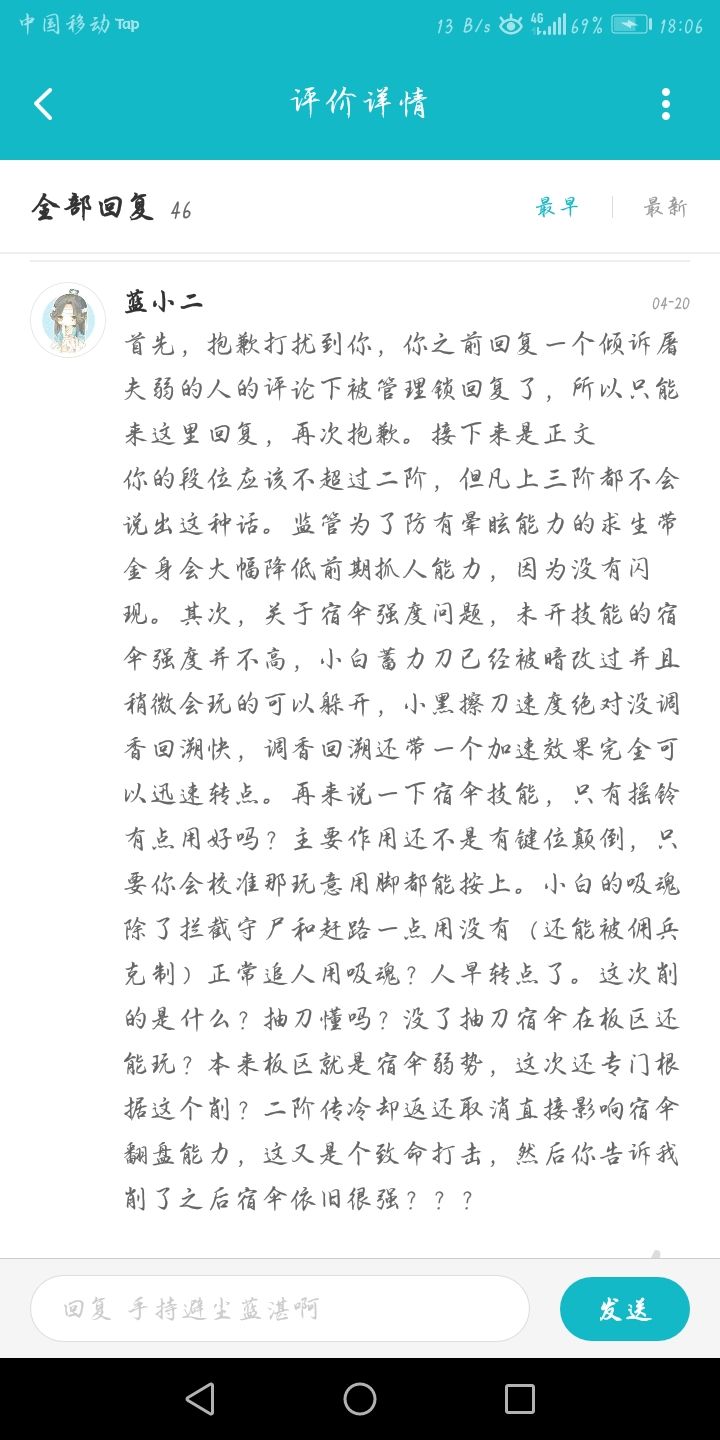 中国移动 Tap 13 B/s 4G 69% 18:06
评价详情
全部回复 46 最早 最新
蓝小二 04-20
首先，抱歉打扰到你，你之前回复一个倾诉屠
夫弱的人的评论下被管理锁回复了，所以只能
来这里回复，再次抱歉。接下来是正文
你的段位应该不超过二阶，但凡上三阶都不会
说出这种话。监管为了防有晕眩能力的求生带
金身会大幅降低前期抓人能力，因为没有闪
现。其次，关于宿伞强度问题，未开技能的宿
伞强度并不高，小白蓄力刀已经被暗改过并且
稍微会玩的可以躲开，小黑擦刀速度绝对没调
香回溯快，调香回溯还带一个加速效果完全可
以迅速转点。再来说一下宿伞技能，只有摇铃
有点用好吗？主要作用还不是有键位颠倒，只
要你会校准那玩意用脚都能按上。小白的吸魂
除了拦截守尸和赶路一点用没有（还能被佣兵
克制）正常追人用吸魂？人早转点了。这次削
的是什么？抽刀懂吗？没了抽刀宿伞在板区还
能玩？本来板区就是宿伞弱势，这次还专门根
据这个削？二阶传冷却返还取消直接影响宿伞
翻盘能力，这又是个致命打击，然后你告诉我
削了之后宿伞依旧很强？？？
回复 手持避尘蓝湛啊 发送